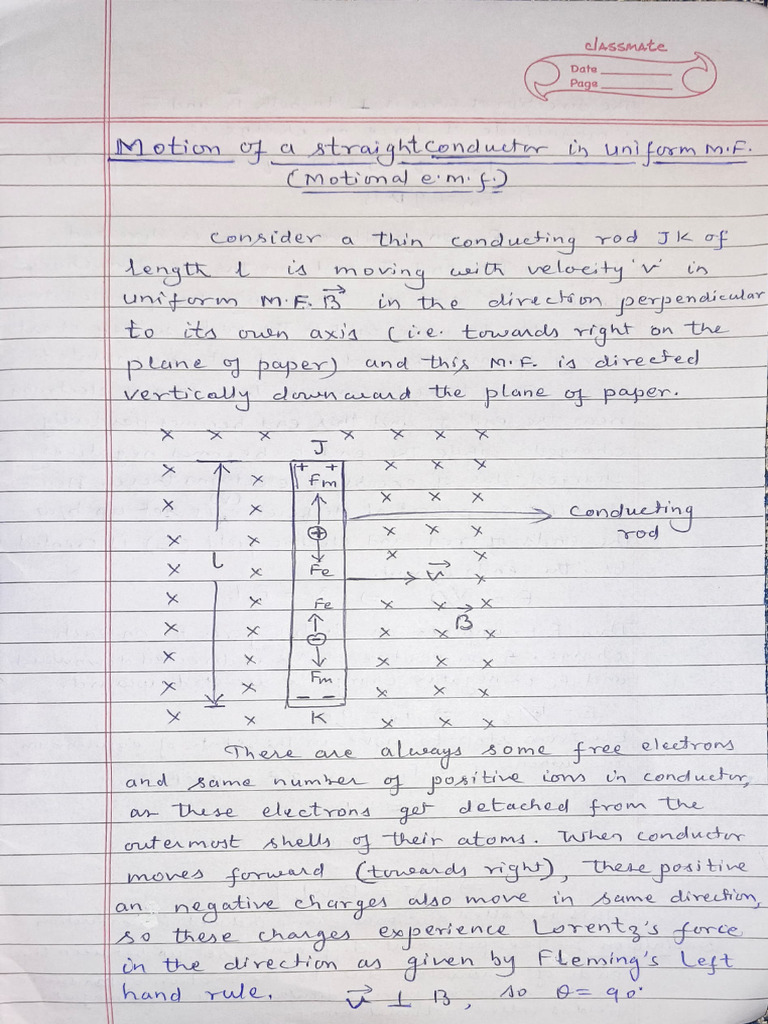 classmate
Date
Page
Motion of a straight conductor in uniform M.F.
(Motional e.m.f.)
Consider a thin conducting rod JK of
length l is moving with velocity 'v' in
uniform M.F. B⃗ in the direction perpendicular
to its own axis (i.e. towards right on the
plane of paper) and this M.F. is directed
vertically downward the plane of paper.
× × × × × × ×
J
+ +
Fm
+
Fe
l
Conducting
rod
v⃗
Fe
B⃗
−
Fm
− −
K
There are always some free electrons
and same number of positive ions in conductor,
as these electrons get detached from the
outermost shells of their atoms. When conductor
moves forward (towards right), these positive
an negative charges also move in same direction,
so these charges experience Lorentz's force
in the direction as given by Fleming's Left
hand rule. v⃗ ⊥ B, so θ = 90°